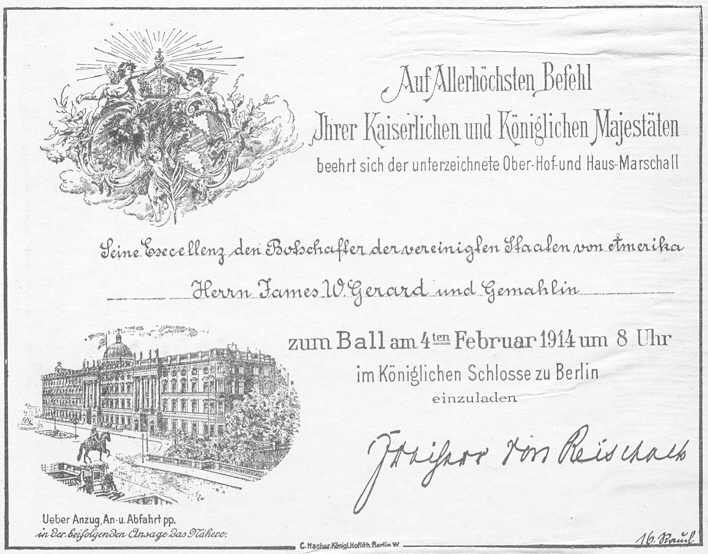 Auf Allerhöchsten Befehl
Ihrer Kaiserlichen und Königlichen Majestäten
beehrt sich der unterzeichnete Ober-Hof-und Haus-Marschall
Seine Excellenz den Botschafter der vereinigten Staaten von Amerika
Herrn James W. Gerard und Gemahlin
zum Ball am 4ten Februar 1914 um 8 Uhr
im Königlichen Schlosse zu Berlin
einzuladen
Freiherr von Reischach
Ueber Anzug, An-u. Abfahrt pp.
in der beifolgenden Ansage das Nähere.
C. Nachur. Königl. Hoflith. Berlin W